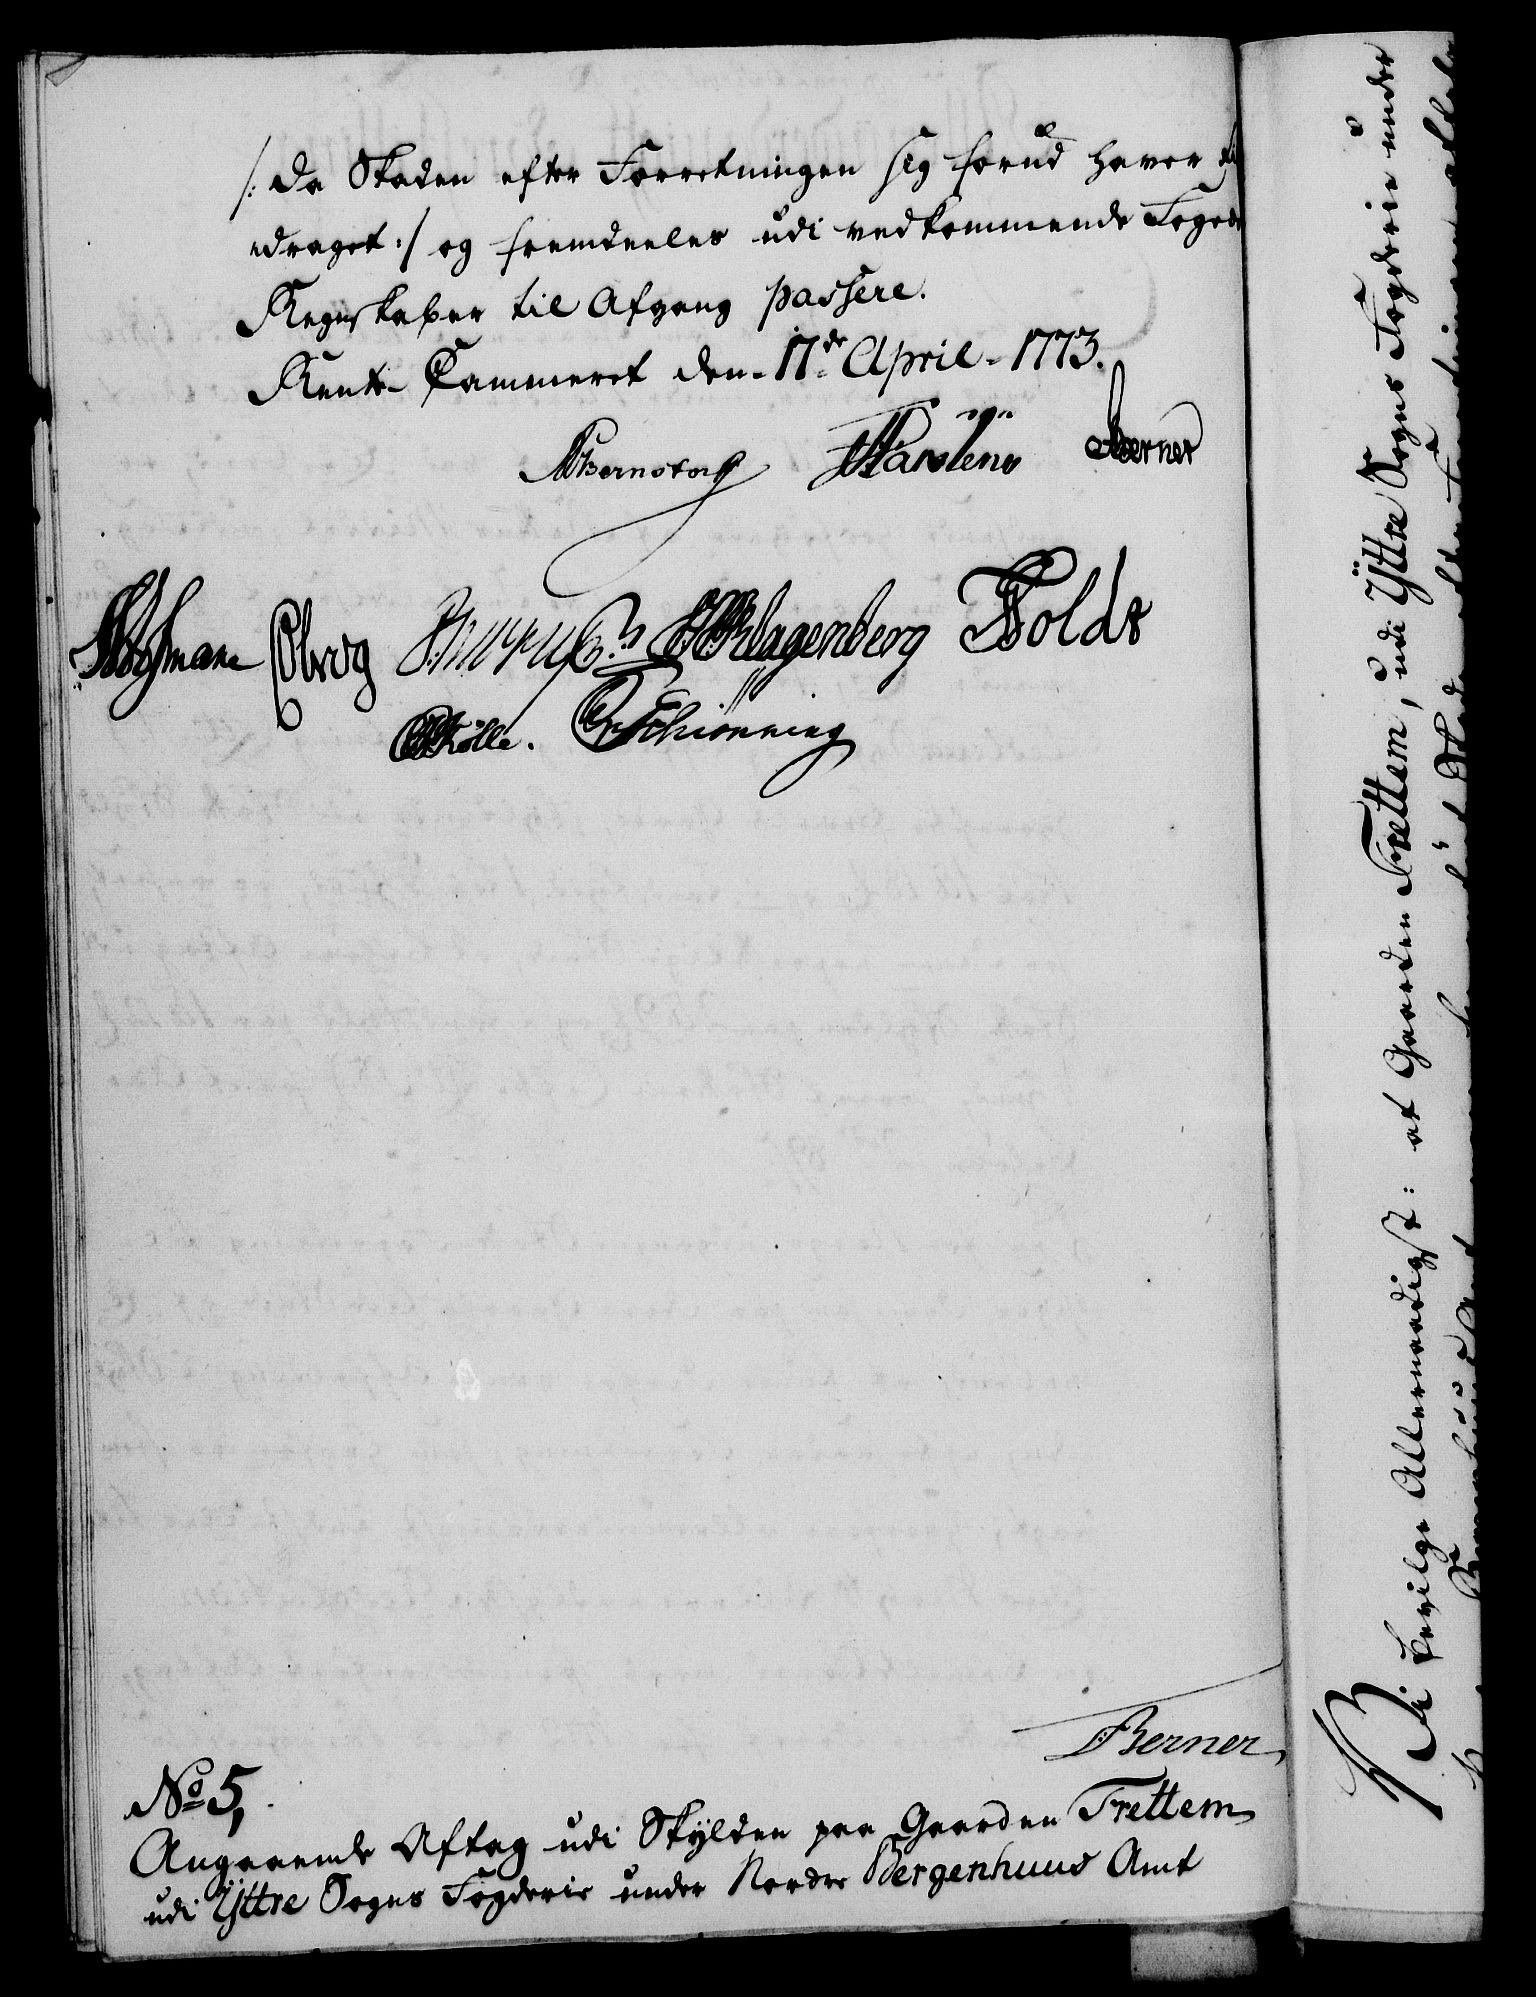 /: da Skaden efter Forretningen sig forud haver
draget :/ og fremdeeles udi vedkommende Foged
Regnskaber til Afgang passere.
Rente Cammeret den 17de April 1773.
Bernstorff Karstens Berner
Klagenberg Holdt
Schiønning
Berner
No 5,
Angaaende Aftag udi Skylden paa Gaarden Trettem
udi Yttre Sogns Fogderie under Nordre Bergenhuus Amt
Vi bevilge Allernaadigst: at Gaarden Trettem, udi Yttre Sogns Fogderie under